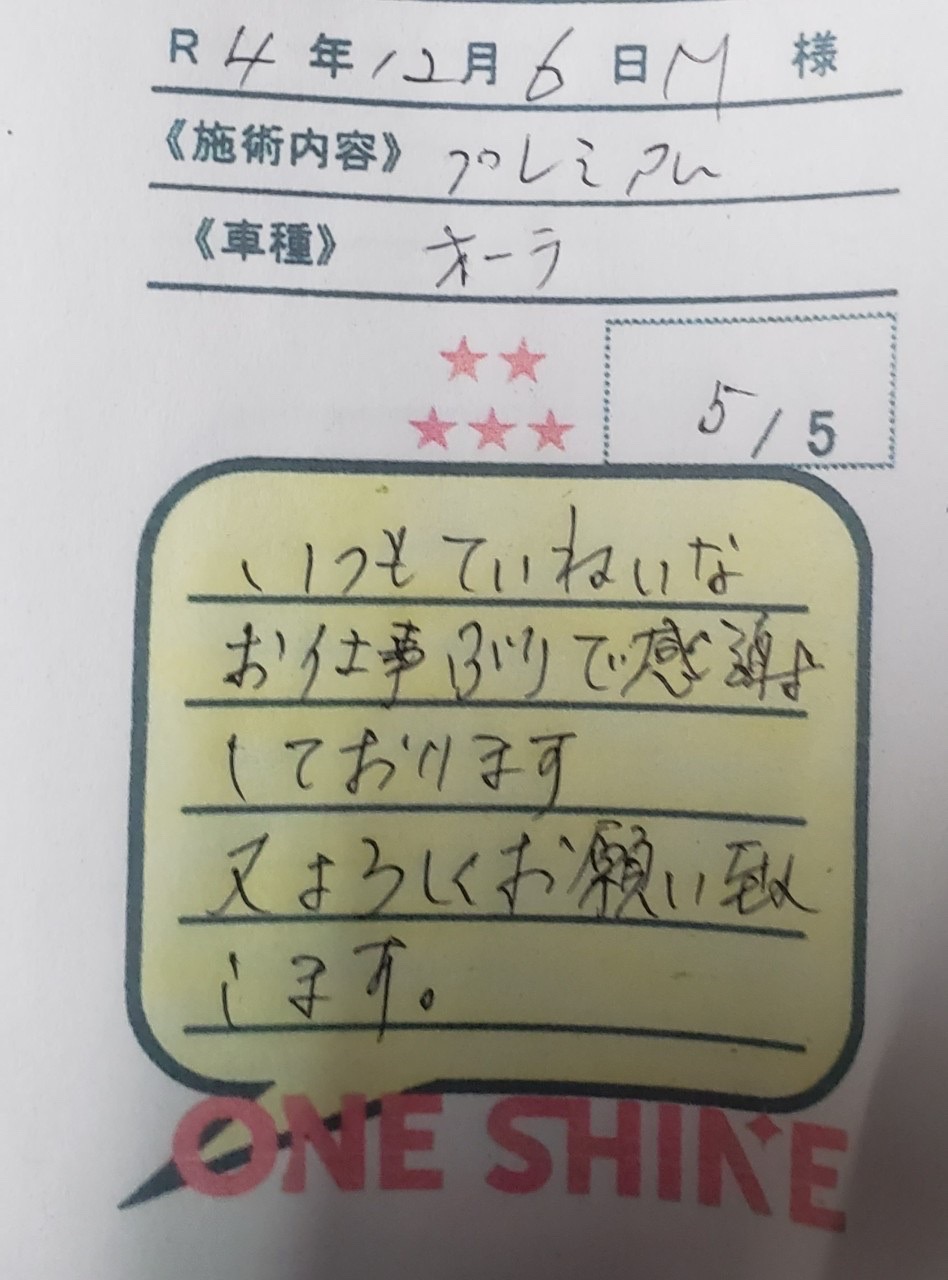 R 4 年 12 月 6 日 M 様
《施術内容》 プレミアム
《車種》 オーラ
5 / 5
いつもていねいな
お仕事ぶりで感謝
しております
又よろしくお願い致
します。
ONE SHINE